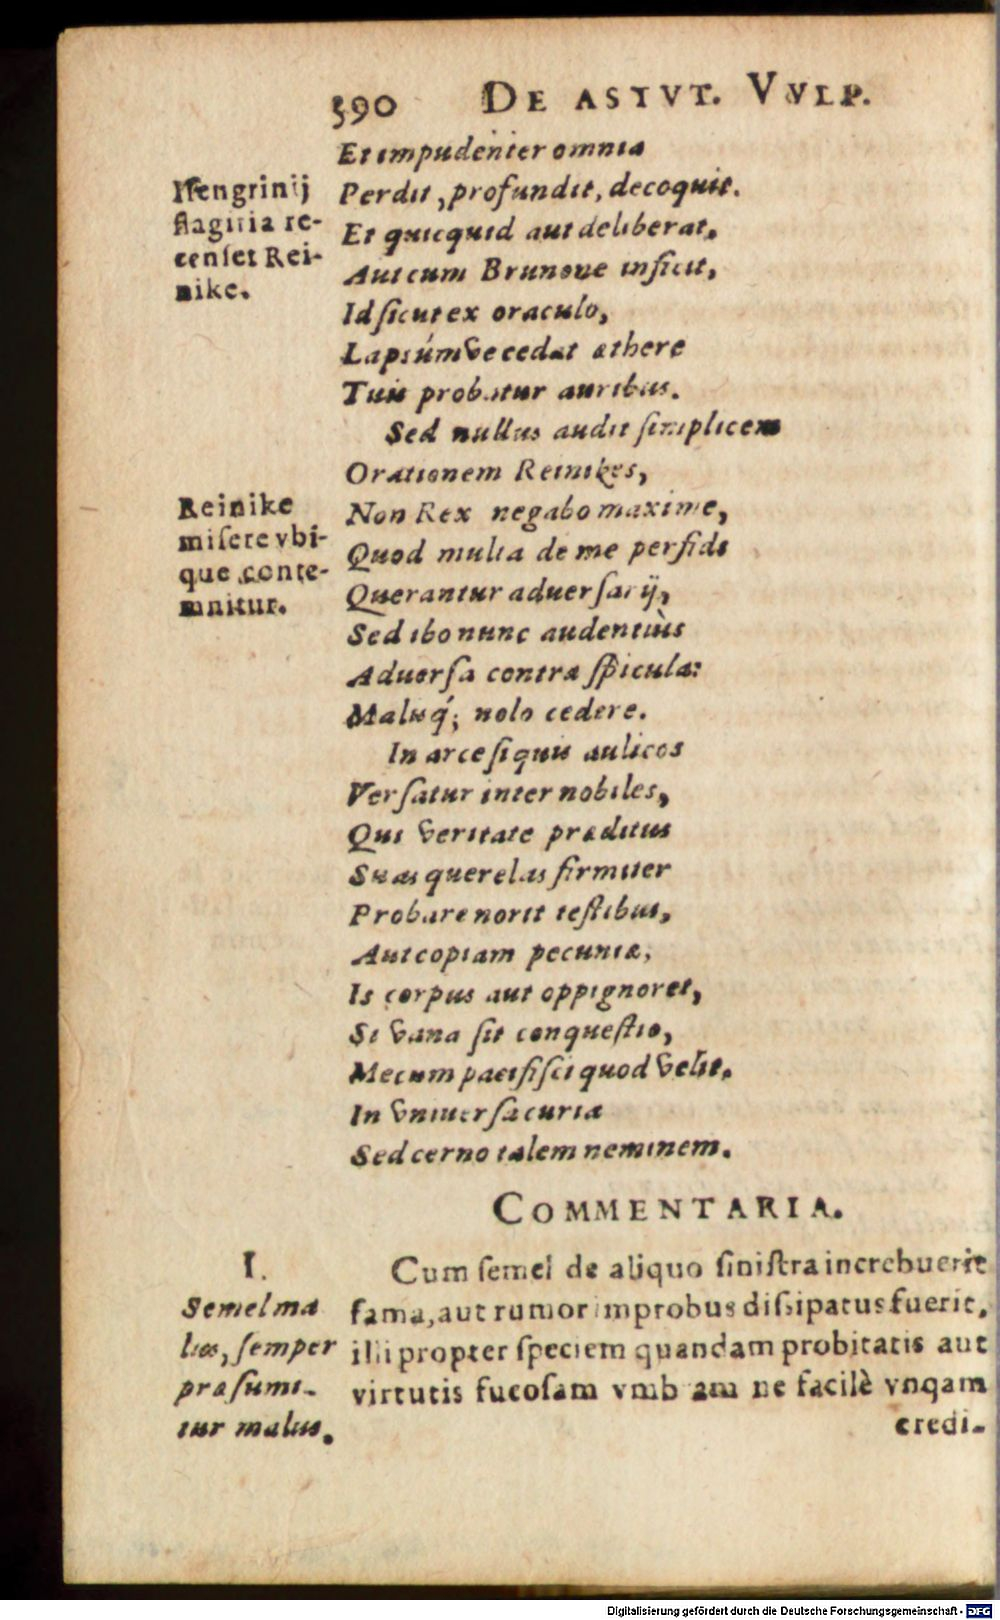 590 DE ASTVT. VVLP.
Et impudenter omnia
Perdit, profundit, decoquit.
Et quicquid aut deliberat,
Aut cum Brunone inficit,
Id sicut ex oraculo,
Lapsúmve cedat æthere
Tuis probatur auribus.
Sed nullus audit simplicem
Orationem Reinikes,
Non Rex negabo maxime,
Quod multa de me perfidi
Querantur aduersarij,
Sed ibo nunc audentiùs
Aduersa contra spicula:
Malisq́; nolo cedere.
In arce siquis aulicos
Versatur inter nobiles,
Qui veritate præditus
Suas querelas firmiter
Probare norit testibus,
Aut copiam pecuniæ,
Is corpus aut oppignoret,
Si vana sit conquestio,
Mecum pacisisci quod velit.
In vniuersa curia
Sed cerno talem neminem.
Isengrinij
flagitia re-
censet Rei-
nike.
Reinike
misere vbi-
que conte-
mnitur.
COMMENTARIA.
I.
Semel ma
lus, semper
præsumi-
tur malus.
Cum semel de aliquo sinistra increbuerit
fama, aut rumor improbus dissipatus fuerit,
illi propter speciem quandam probitatis aut
virtutis fucosam vmb am ne facilè vnqam
credi-
Digitalisierung gefördert durch die Deutsche Forschungsgemeinschaft - DFG